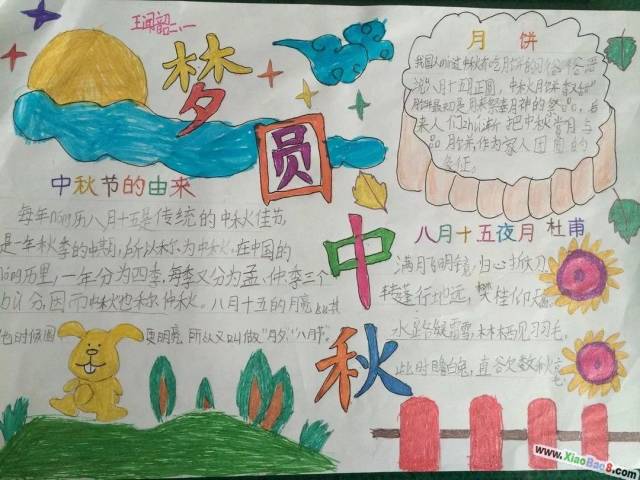 王润韶二、一
梦
圆
中
秋
中秋节的由来
每年nóng历八月十五是传统的中秋佳节
是一年秋季的中期,所以称为中秋,在中国的
nóng历里,一年分为四季,每季又分为孟、仲、季三个
bù分,因而中秋也称仲秋。八月十五的月亮比其
他时候圆 更明亮 所以又叫做"月夕""八月节"。
月饼
我国人们过中秋有吃月饼的习俗俗话
说"八月十五月正圆,中秋月饼
月饼最初是用来祭奉月神的祭品,后
来人们zhú渐把中秋赏月与
品月饼,作为家人团圆的
象征。
八月十五夜月 杜甫
满月飞明镜,归心折大刀
转蓬行地远,攀桂仰天高
水路疑霜雪,林栖见羽毛,
此时瞻白兔,直欲数秋毫
www.XiaoBao8.com